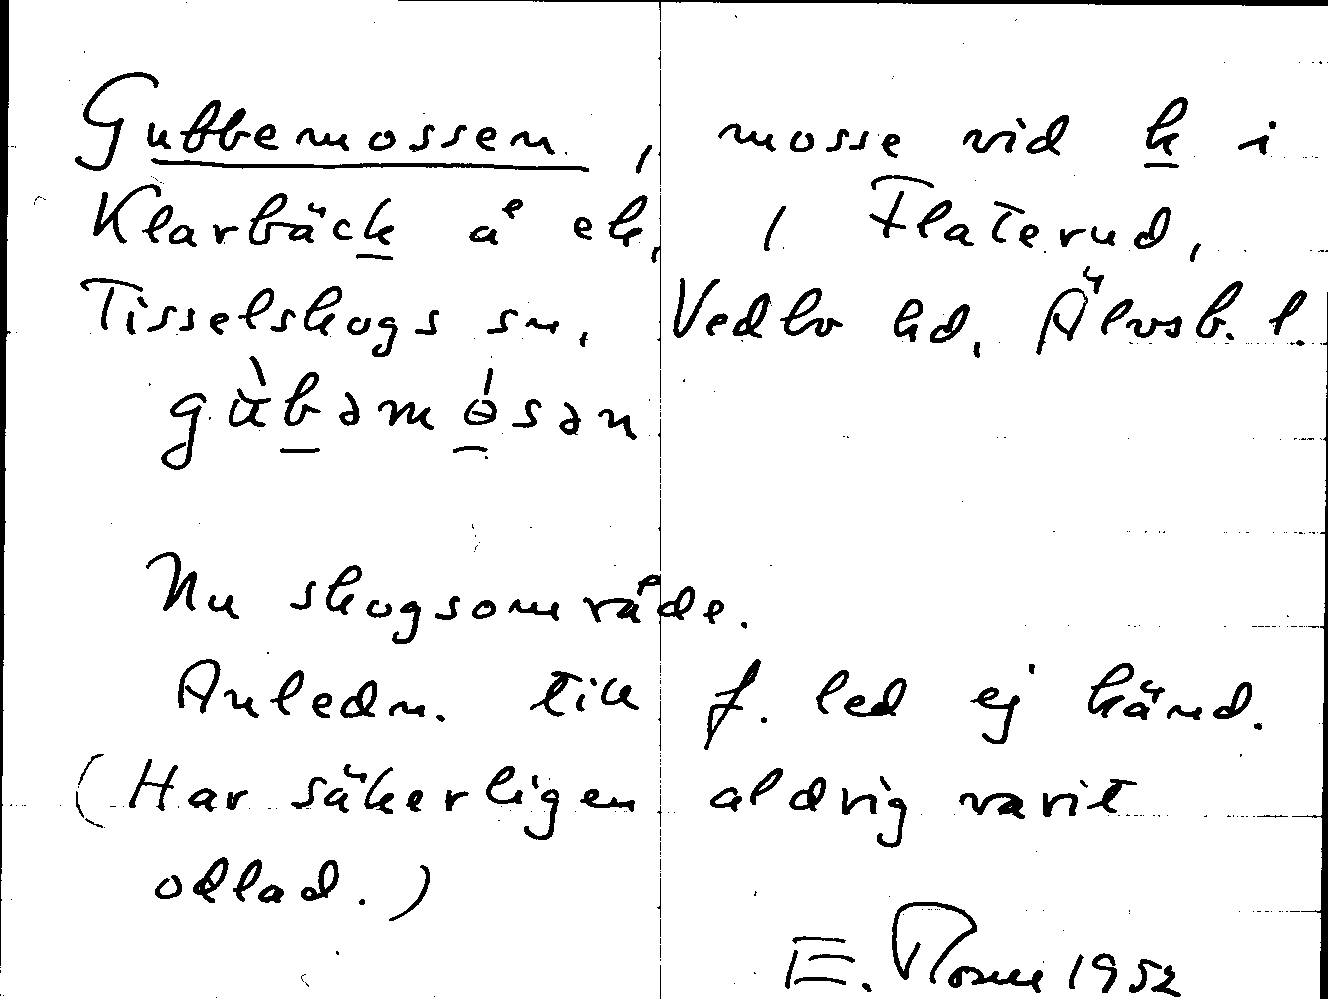 Gubbemossen, mosse vid k i
Klarbäck å ek. 1 Flaterud,
Tisselskogs sn, Vedbo hd, Älvsb. l.
gùbəmɵ́sən
Nu skogsområde.
Anledn. till f. led ej känd.
(Har säkerligen aldrig varit
odlad.)
E. 1952